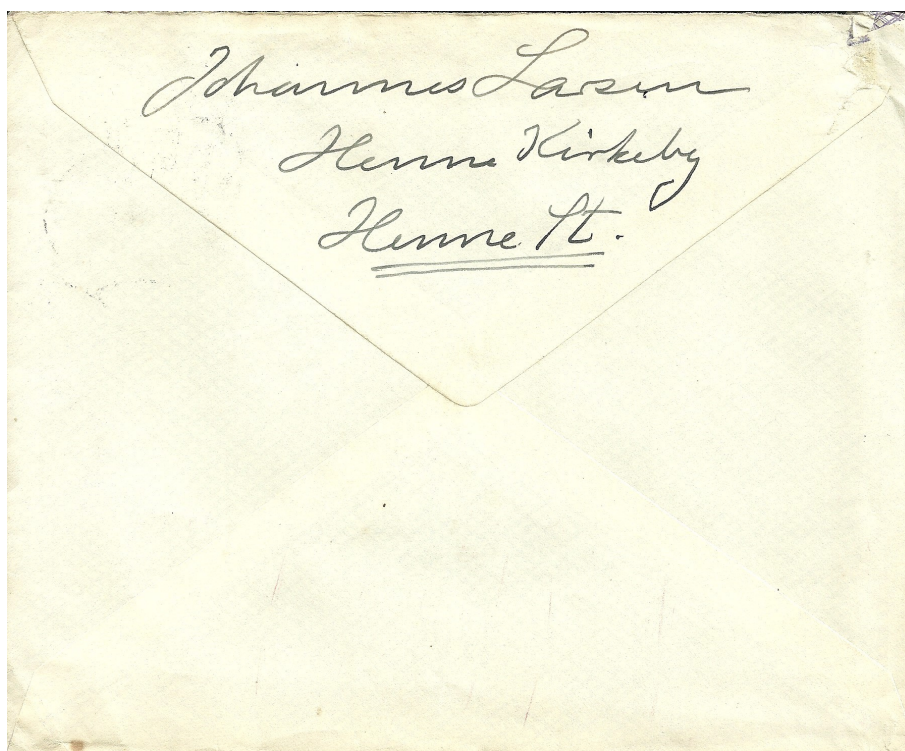 Johannes Larsen
Henne Kirkeby
Henne St.